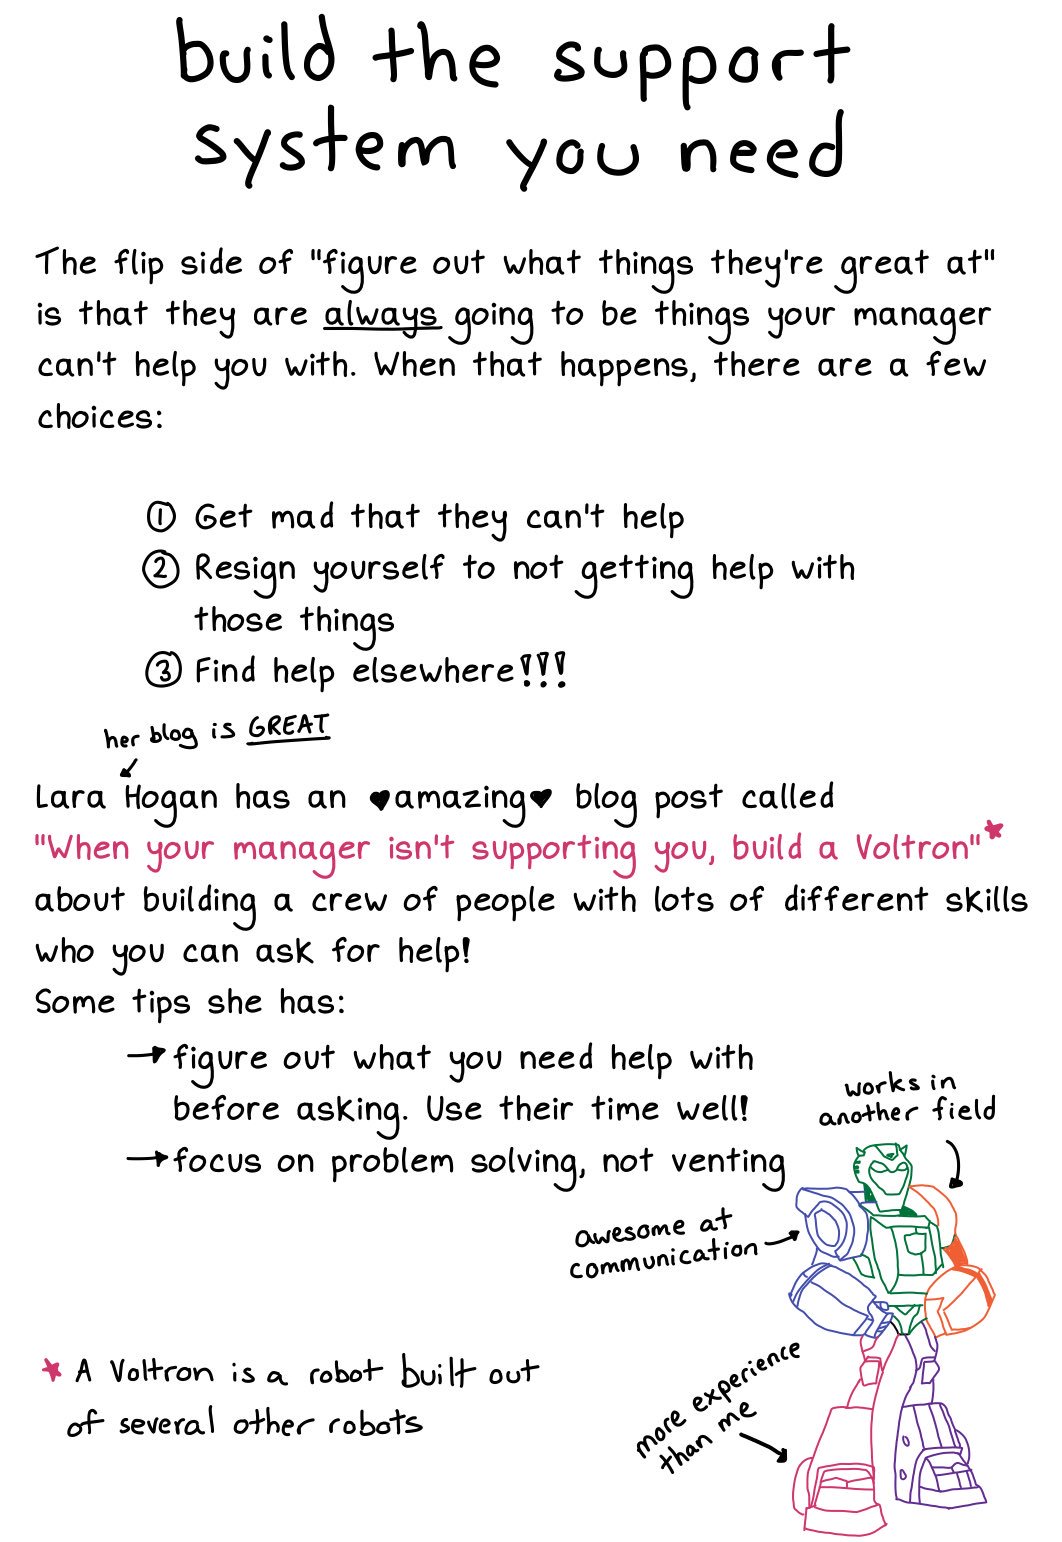 build the support
system you need
The flip side of "figure out what things they're great at"
is that they are always going to be things your manager
can't help you with. When that happens, there are a few
choices:
① Get mad that they can't help
② Resign yourself to not getting help with
those things
③ Find help elsewhere!!!
her blog is GREAT
Lara Hogan has an ♥amazing♥ blog post called
"When your manager isn't supporting you, build a Voltron"★
about building a crew of people with lots of different skills
who you can ask for help!
Some tips she has:
→ figure out what you need help with
before asking. Use their time well!
→ focus on problem solving, not venting
works in
another field
awesome at
communication
more experience
than me
★ A Voltron is a robot built out
of several other robots